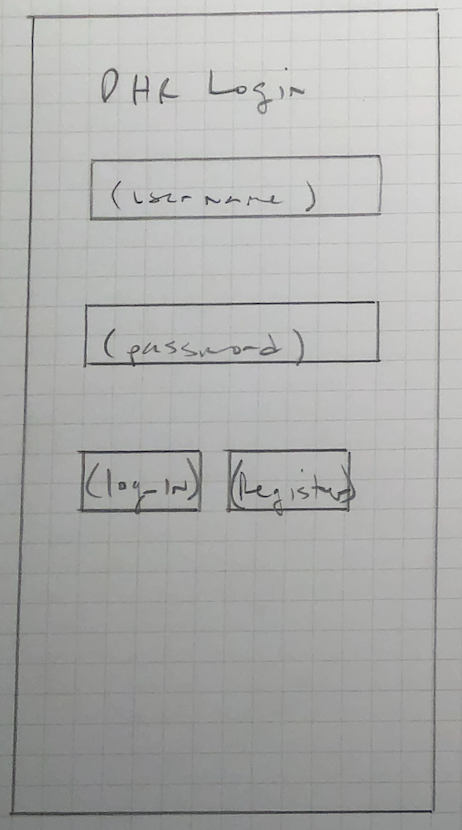 DHR Login
(username)
(password)
(log-IN) (Register)